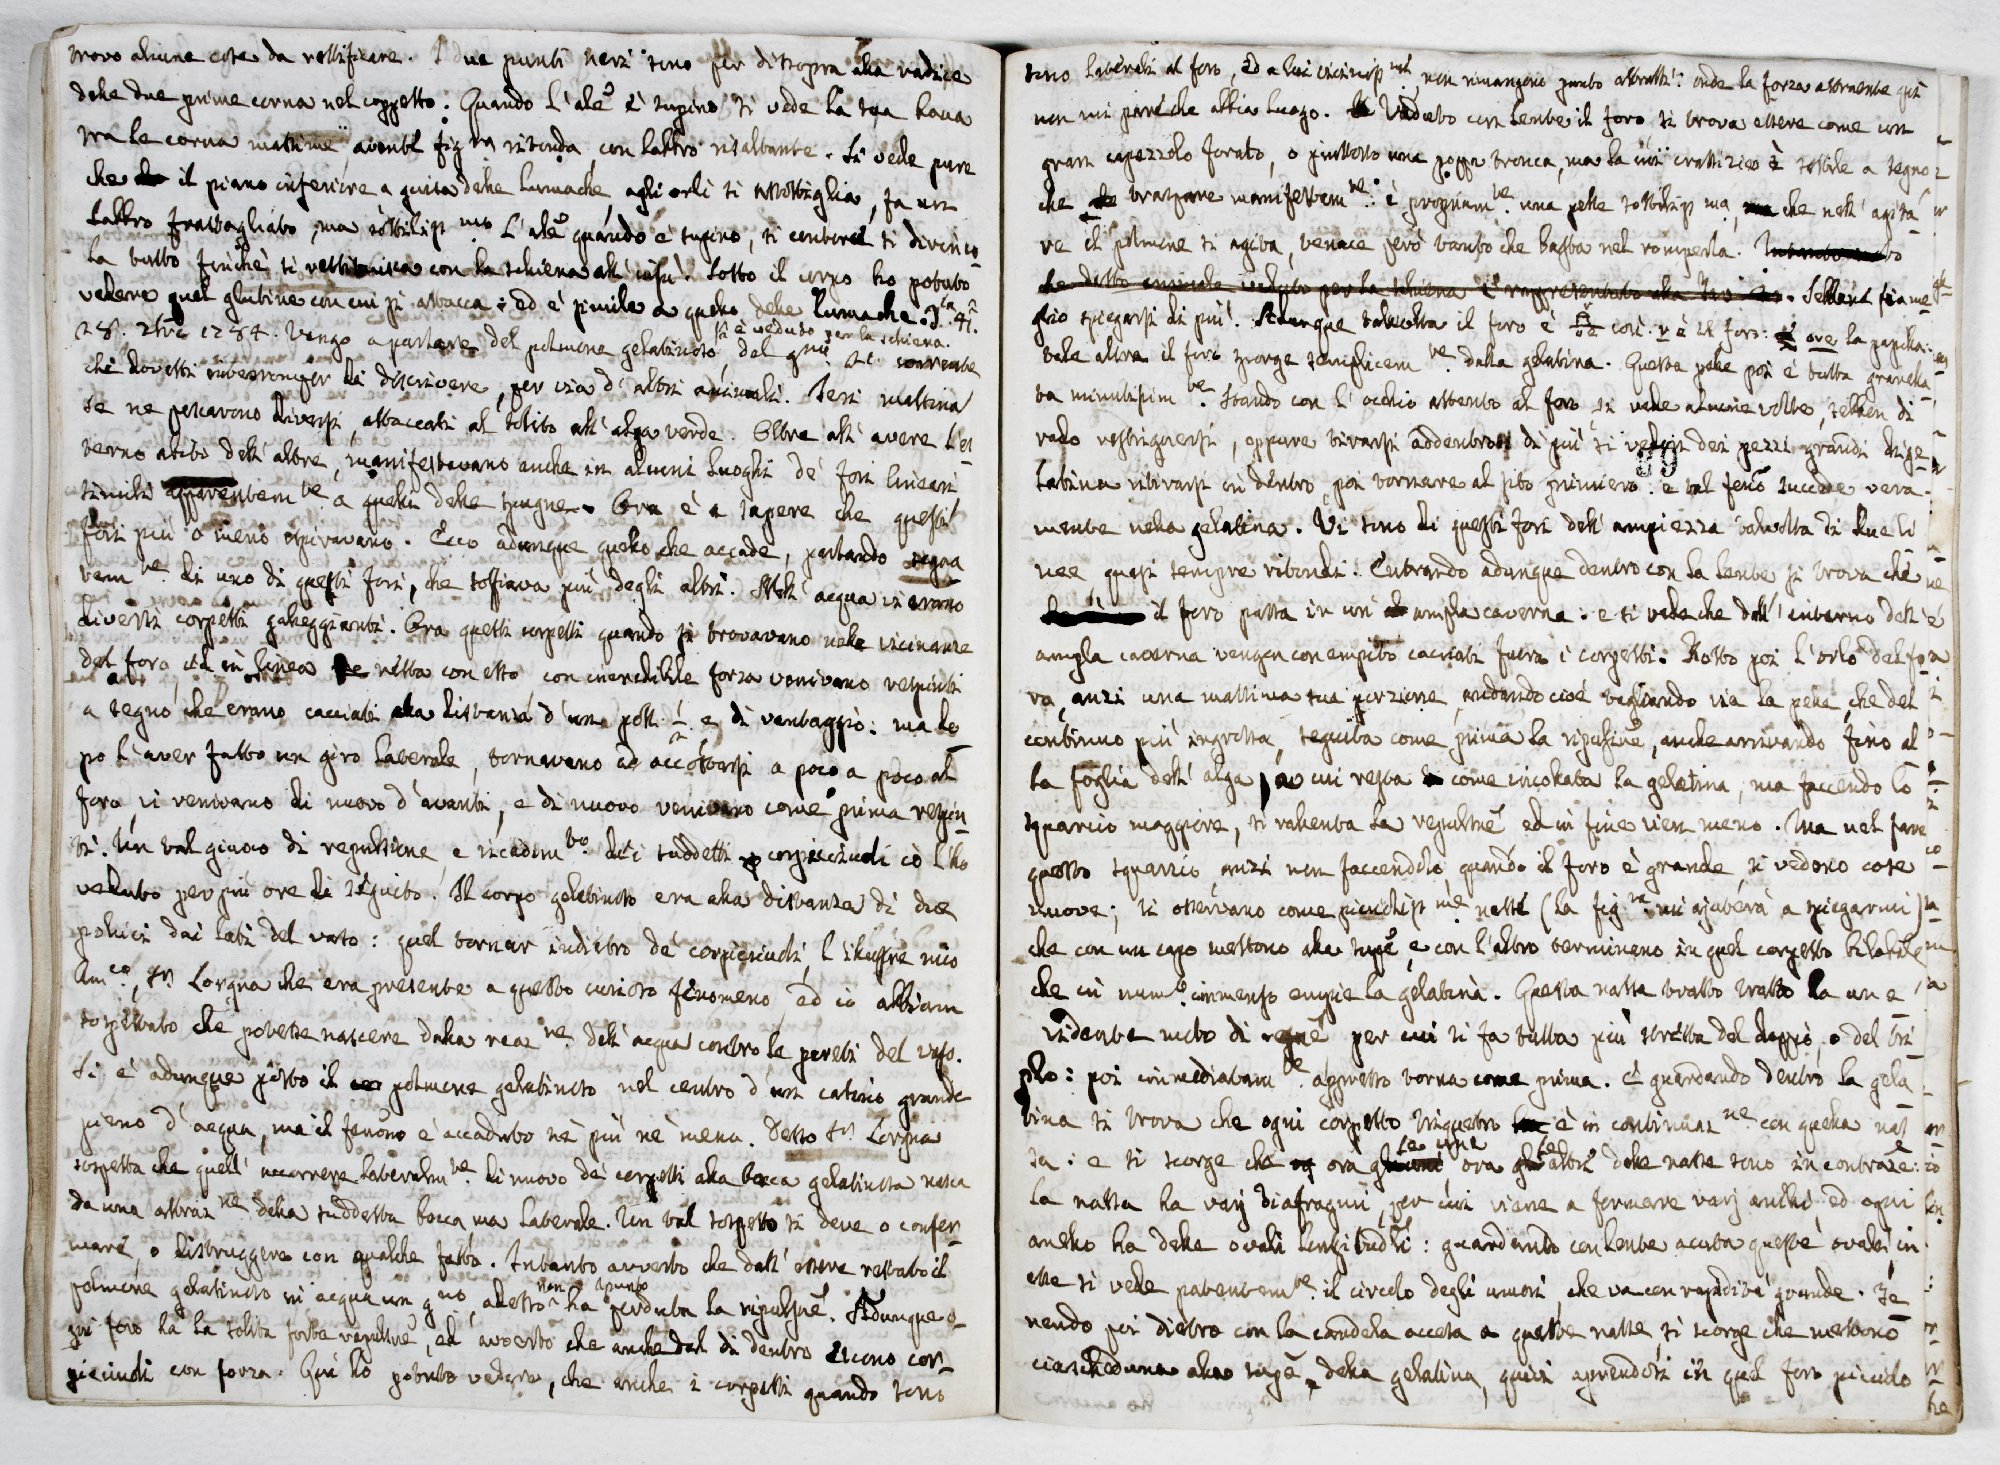 trovo alcune cose da rettificare. I due punti neri sono per disopra alla radice
delle due prime corna nel cappello. Quando l'ale è supino si vede la sua bocca
tra le corna massime, avente figra ritonda, con labbro risaltante. Si vede pure
che il piano inferiore a guisa delle lumache, agli orli si assottiglia, fa un
labbro frastagliato, ma sottilissmo. L'ale quando è supino, si contorce si divinco
la tutto finchè si restituisca con la schiena all'insù. Sotto il corpo ho potuto
vedere quel glutine con cui si attacca: ed è simile a quello delle lumache.
28. 7bre 1784. Vengo a parlare del polmone gelatinoso, del
è veduto per la schiena.
che dovetti interromper di discrivere, per via d'altri animali. Ieri mattina
se ne pescarono diversi, attaccati al solito all'alga verde. Oltre all'avere l'es
terno abito dell'altre, manifestavano anche in alcuni luoghi de' fori lineari
simili apparentemte a quelli delle spugne. Ora è a sapere che questi
fori più o meno spiravano. Ecco adunque quello che accade, parlando segna
temte di uno di questi fori, che soffiava più degli altri. Nell'acqua vi erano
diversi corpetti galleggianti. Ora questi corpetti quando si trovavano nelle vicinanze
del foro, ed in linea retta con esso con incredibile forza venivano respinti
a segno che erano cacciati alla distanza d'un poll. 1/2 e di vantaggio: ma do
po l'aver fatto un giro laterale, tornavano ad accostarsi a poco a poco al
foro, vi venivano di nuovo d'avanti, e di nuovo venivano come prima respin
ti. Un tal giuoco di repulsione e ricadimto de' suddetti corpicciuoli io l'ho
veduto per più ore di seguito. Il corpo gelatinoso era alla distanza di due
pollici dai lati del vaso: quel tornar indietro de' corpicciuoli, l'illustre mio
Amco, Sr Lorgna che era presente a questo curioso fenomeno ed io abbiam
sospettato che potesse nascere dalla reazne dell'acqua contro le pareti del vaso.
Si è adunque posto il polmone gelatinoso nel centro d'un catino grande
pieno d'acqua, ma il fenomo è accaduto nè più nè meno. Desso Sr Lorgna
sospetta che quell'accorrere lateralmte di nuovo de' corpetti alla bocca gelatinosa nasca
da una attrazne della suddetta bocca ma laterale. Un tal sospetto si deve o confer
mare, o distruggere con qualche fatto. Intanto avverto che dall'essere restato il
polmone gelatinoso in acqua un gno, adesso non ha punto perduta la ripulsne. Adunque o
gni foro ha la solita forte repulsne, ed avverto che anche dal di dentro escono cor
piciuoli con forza. Qui ho potuto vedere, che anche i corpetti quando sono
sono laterali al foro, ed a lui vicinissmi, non rimangono punto attratti: onde la forza attraente qui
non mi pare che abbia luogo. Veduto con lente il foro si trova essere come un
gran capezzolo forato, o piuttosto una poppa tronca, ma la cui crassizie è sottile a segno
che traspare manifestemte: è propriamte una pelle sottilissma, che nell'agita
re il polmone si agita, tenace però tanto che basta nel romperla. Intantomto
che detto animale veduto per la schiena è rappresentato alla
glio spiegarsi di più. Adunque talvolta il foro è così: v è il foro: ove la papilla:
tale altra il foro sporge semplicemte dalla gelatina. Questa pelle poi è tutta granella
ta minutissimte. Stando con l'occhio attento al foro si vede alcune volte, sebben di
rado restrignersi, oppure tirarsi addentro: di più si vedon dei pezzi grandi di ge
latina ritirarsi in dentro, poi tornare al sito primiero: e tal feno succede vera
mente nella gelatina. Vi sono di questi fori dell'ampiezza talvolta di due li
nee quasi sempre ritondi. Entrando adunque dentro con la lente si trova che
il foro passa in un ampla caverna: e si vede che dall'interno dell'
ampla caverna vengon con empito cacciati fuora i corpetti. Rotto poi l'orlo del fo
ro, anzi una massima sua porzione, andando cioè tagliando via la pelle, che del
continuo più ingrossa, seguita come prima la ripulsne, anche arrivando fino al
la foglia dell'alga, a cui resta come incollata la gelatina, ma facendo lo
squarcio maggiore, si rallenta la repulsne ed in fine vien meno. Ma nel fare
questo squarcio, anzi non facendolo quando il foro è grande, si vedono cose
nuove; si osservano come picciolissme nasse (la figra mi ajuterà a spiegarmi)
che con un capo mettono alla supe, e con l'altro terminano in quel corpetto bilabile
che in numo immenso empie la gelatina. Questa nassa tratto tratto ha un e
vidente moto di per cui si fa tutta più stretta del doppio, o del tri
plo: poi immediatamte appresso torna come prima. E guardando dentro la gela
tina si trova che ogni corpetto triquetro è in continuazne con quella nas
sa: e si scorge che ora le une ora le altre delle nasse sono in contraze:
la nassa ha varj diafragmi, per cui viene a formare varj anelli: ed ogni
anello ha delle ovali longitudli: guardando con lente acuta queste ovali, in
esse si vede patentemte il circolo degli umori, che va con rapidità grande. Te
nendo poi dietro con la candela accesa a queste nasse, si scorge che mettono
ciascheduna alla supe della gelatina, quivi aprendosi in quel foro piciolo